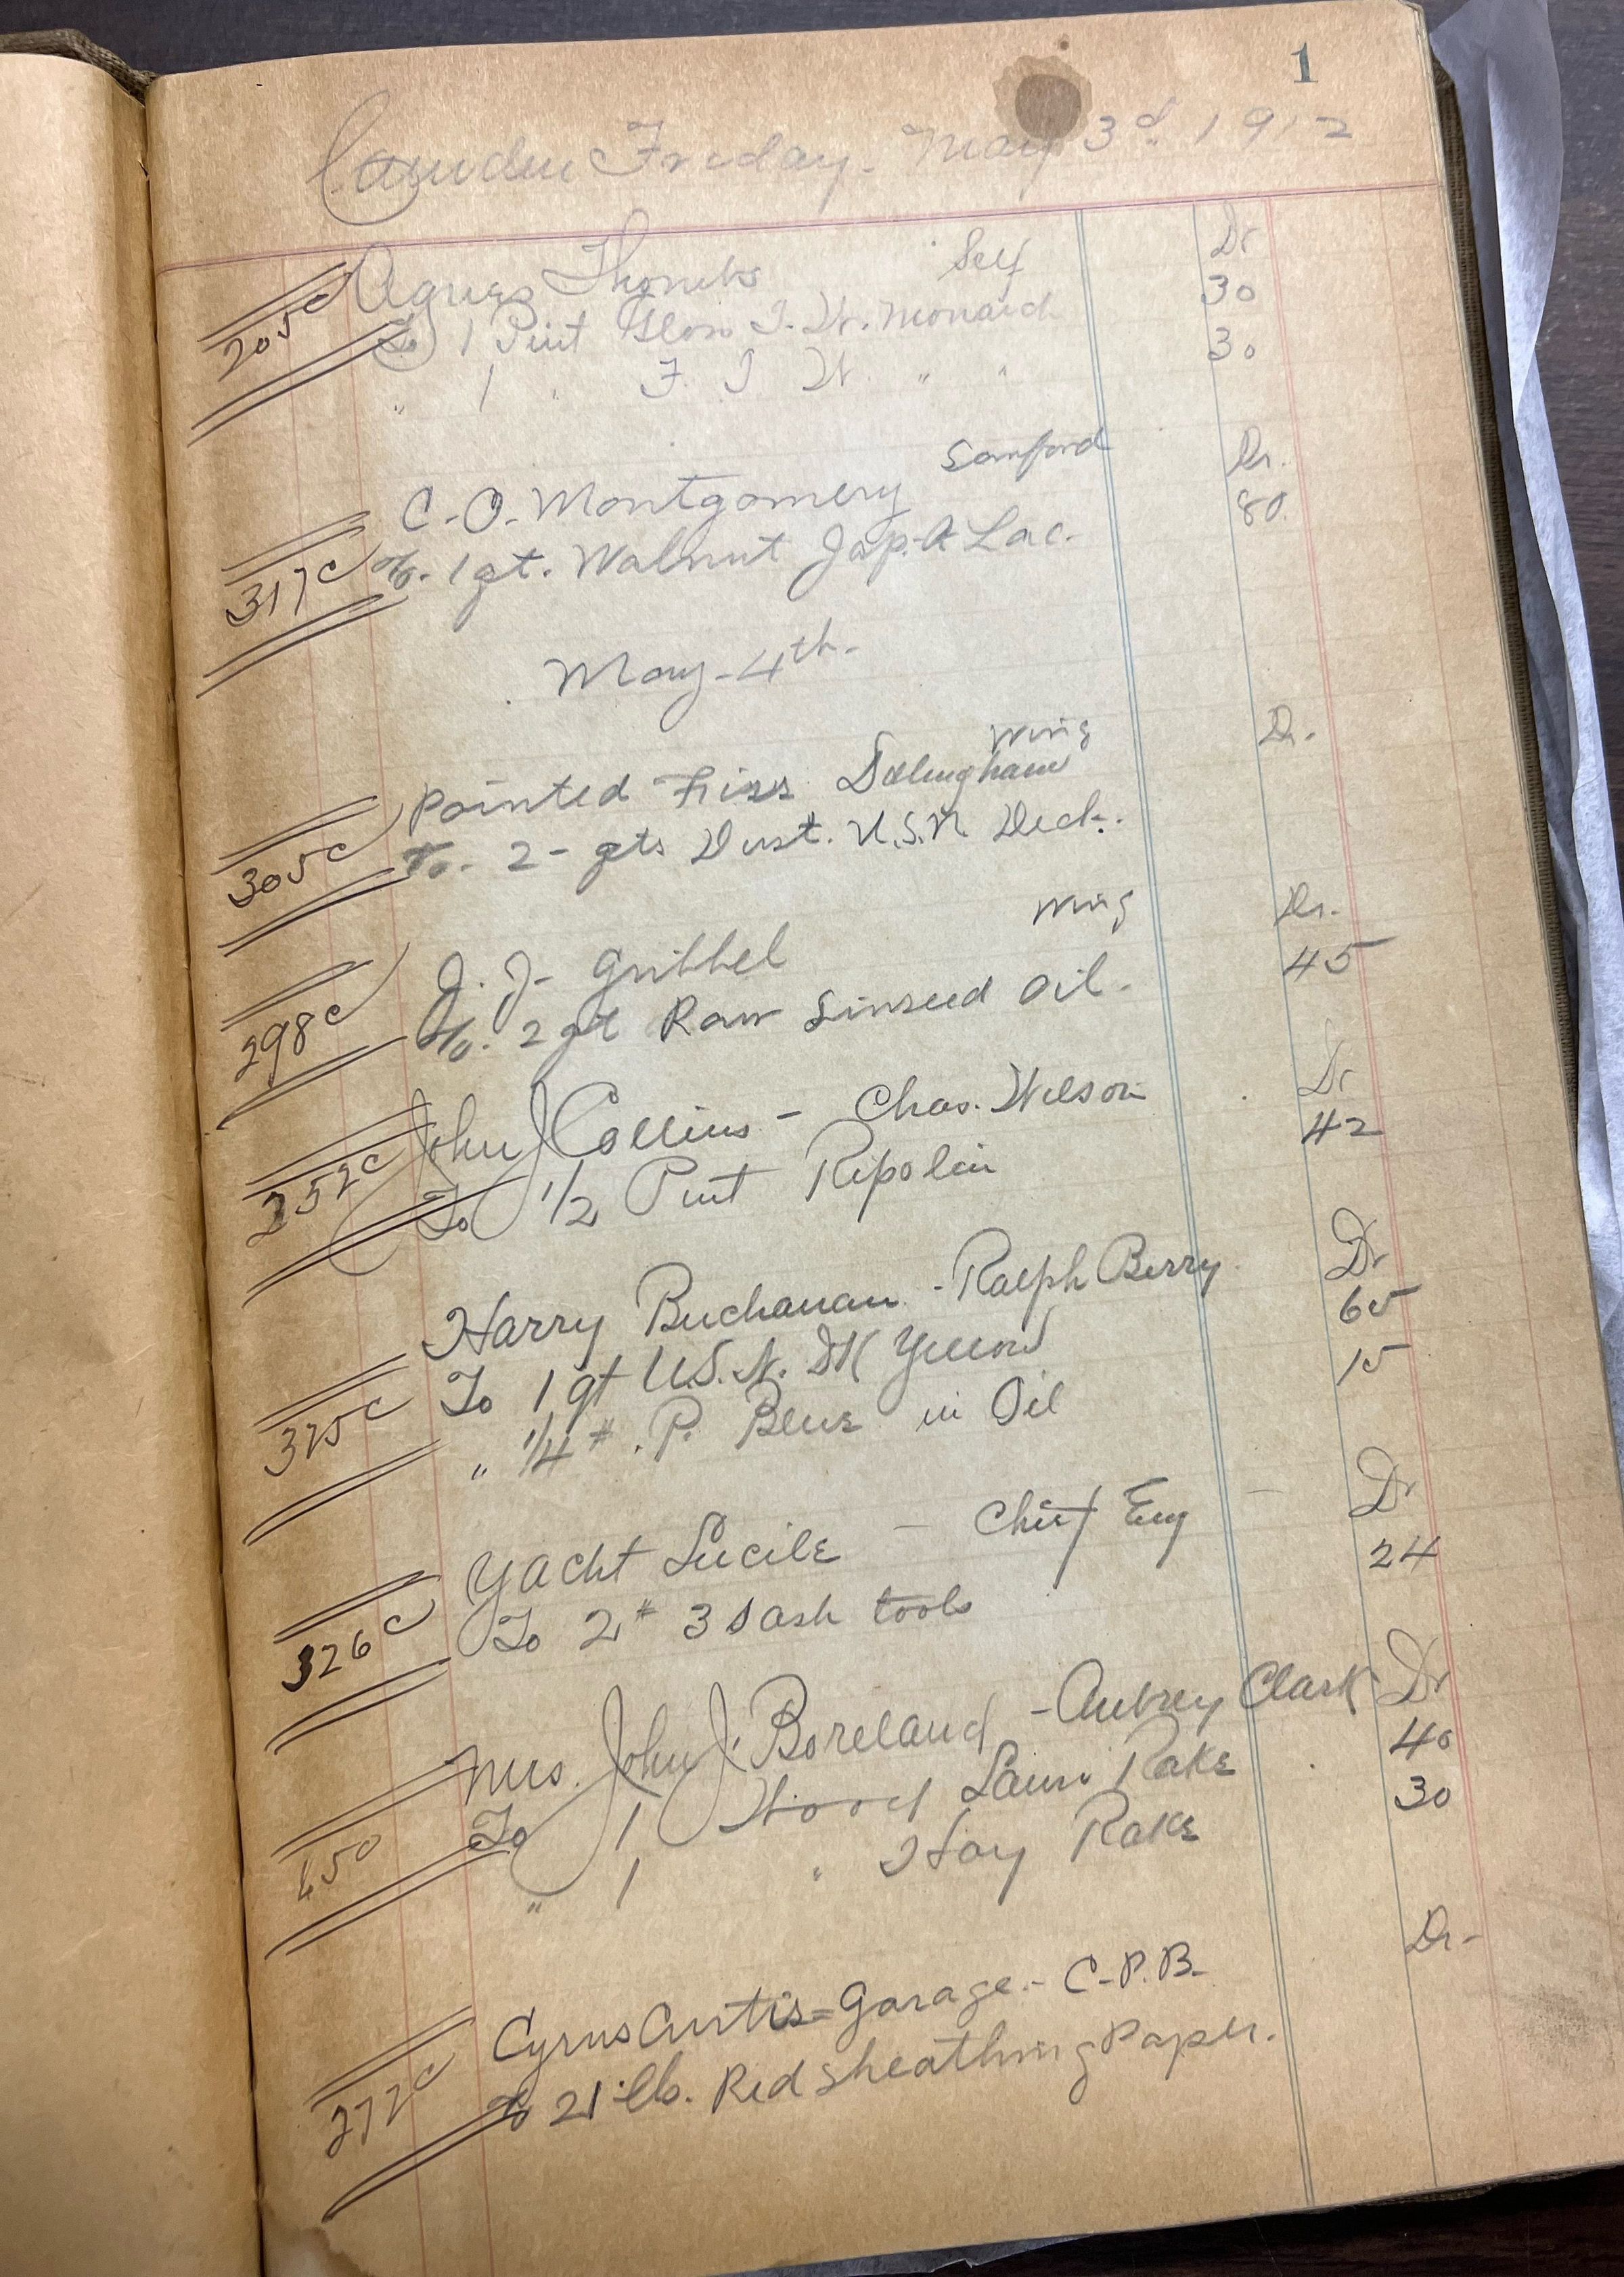 1
Camden Friday. May 3d. 1912
205c Agnes Self Dr
To 1 Pint Gloss I. W. Monarch 30
" 1 " F. I W. " " 30
317c C. O. Montgomery Sanford Dr.
To. 1 qt. Walnut Jap-A-Lac. 80.
May - 4th.
Wing Dr.
305c Painted Dillingham
To. 2 - qts Dust. U.S.N Deck.
298c J. J. Gribbel Wing Dr.
To. 2 qt Raw Linseed Oil. 45
252c John J Collins - Chas. Wilson Dr
To 1/2 Pint Ripolin 42
325c Harry Buchanan - Ralph Berry Dr
To 1 qt U.S.N. DK Yellow 65
" 1/4 # P. Blue in Oil 15
326c Yacht Lucile - Chief Eng - Dr
To 2 # 3 Sash tools 24
450 Mrs. John J. Boreland - Aubrey Clark Dr
To 1 Wood Lawn Rake 40
" 1 " Hay Rake 30
272c Cyrus Curtis = Garage. - C. P. B. Dr-
To 21 lb. Red Sheathing Paper.